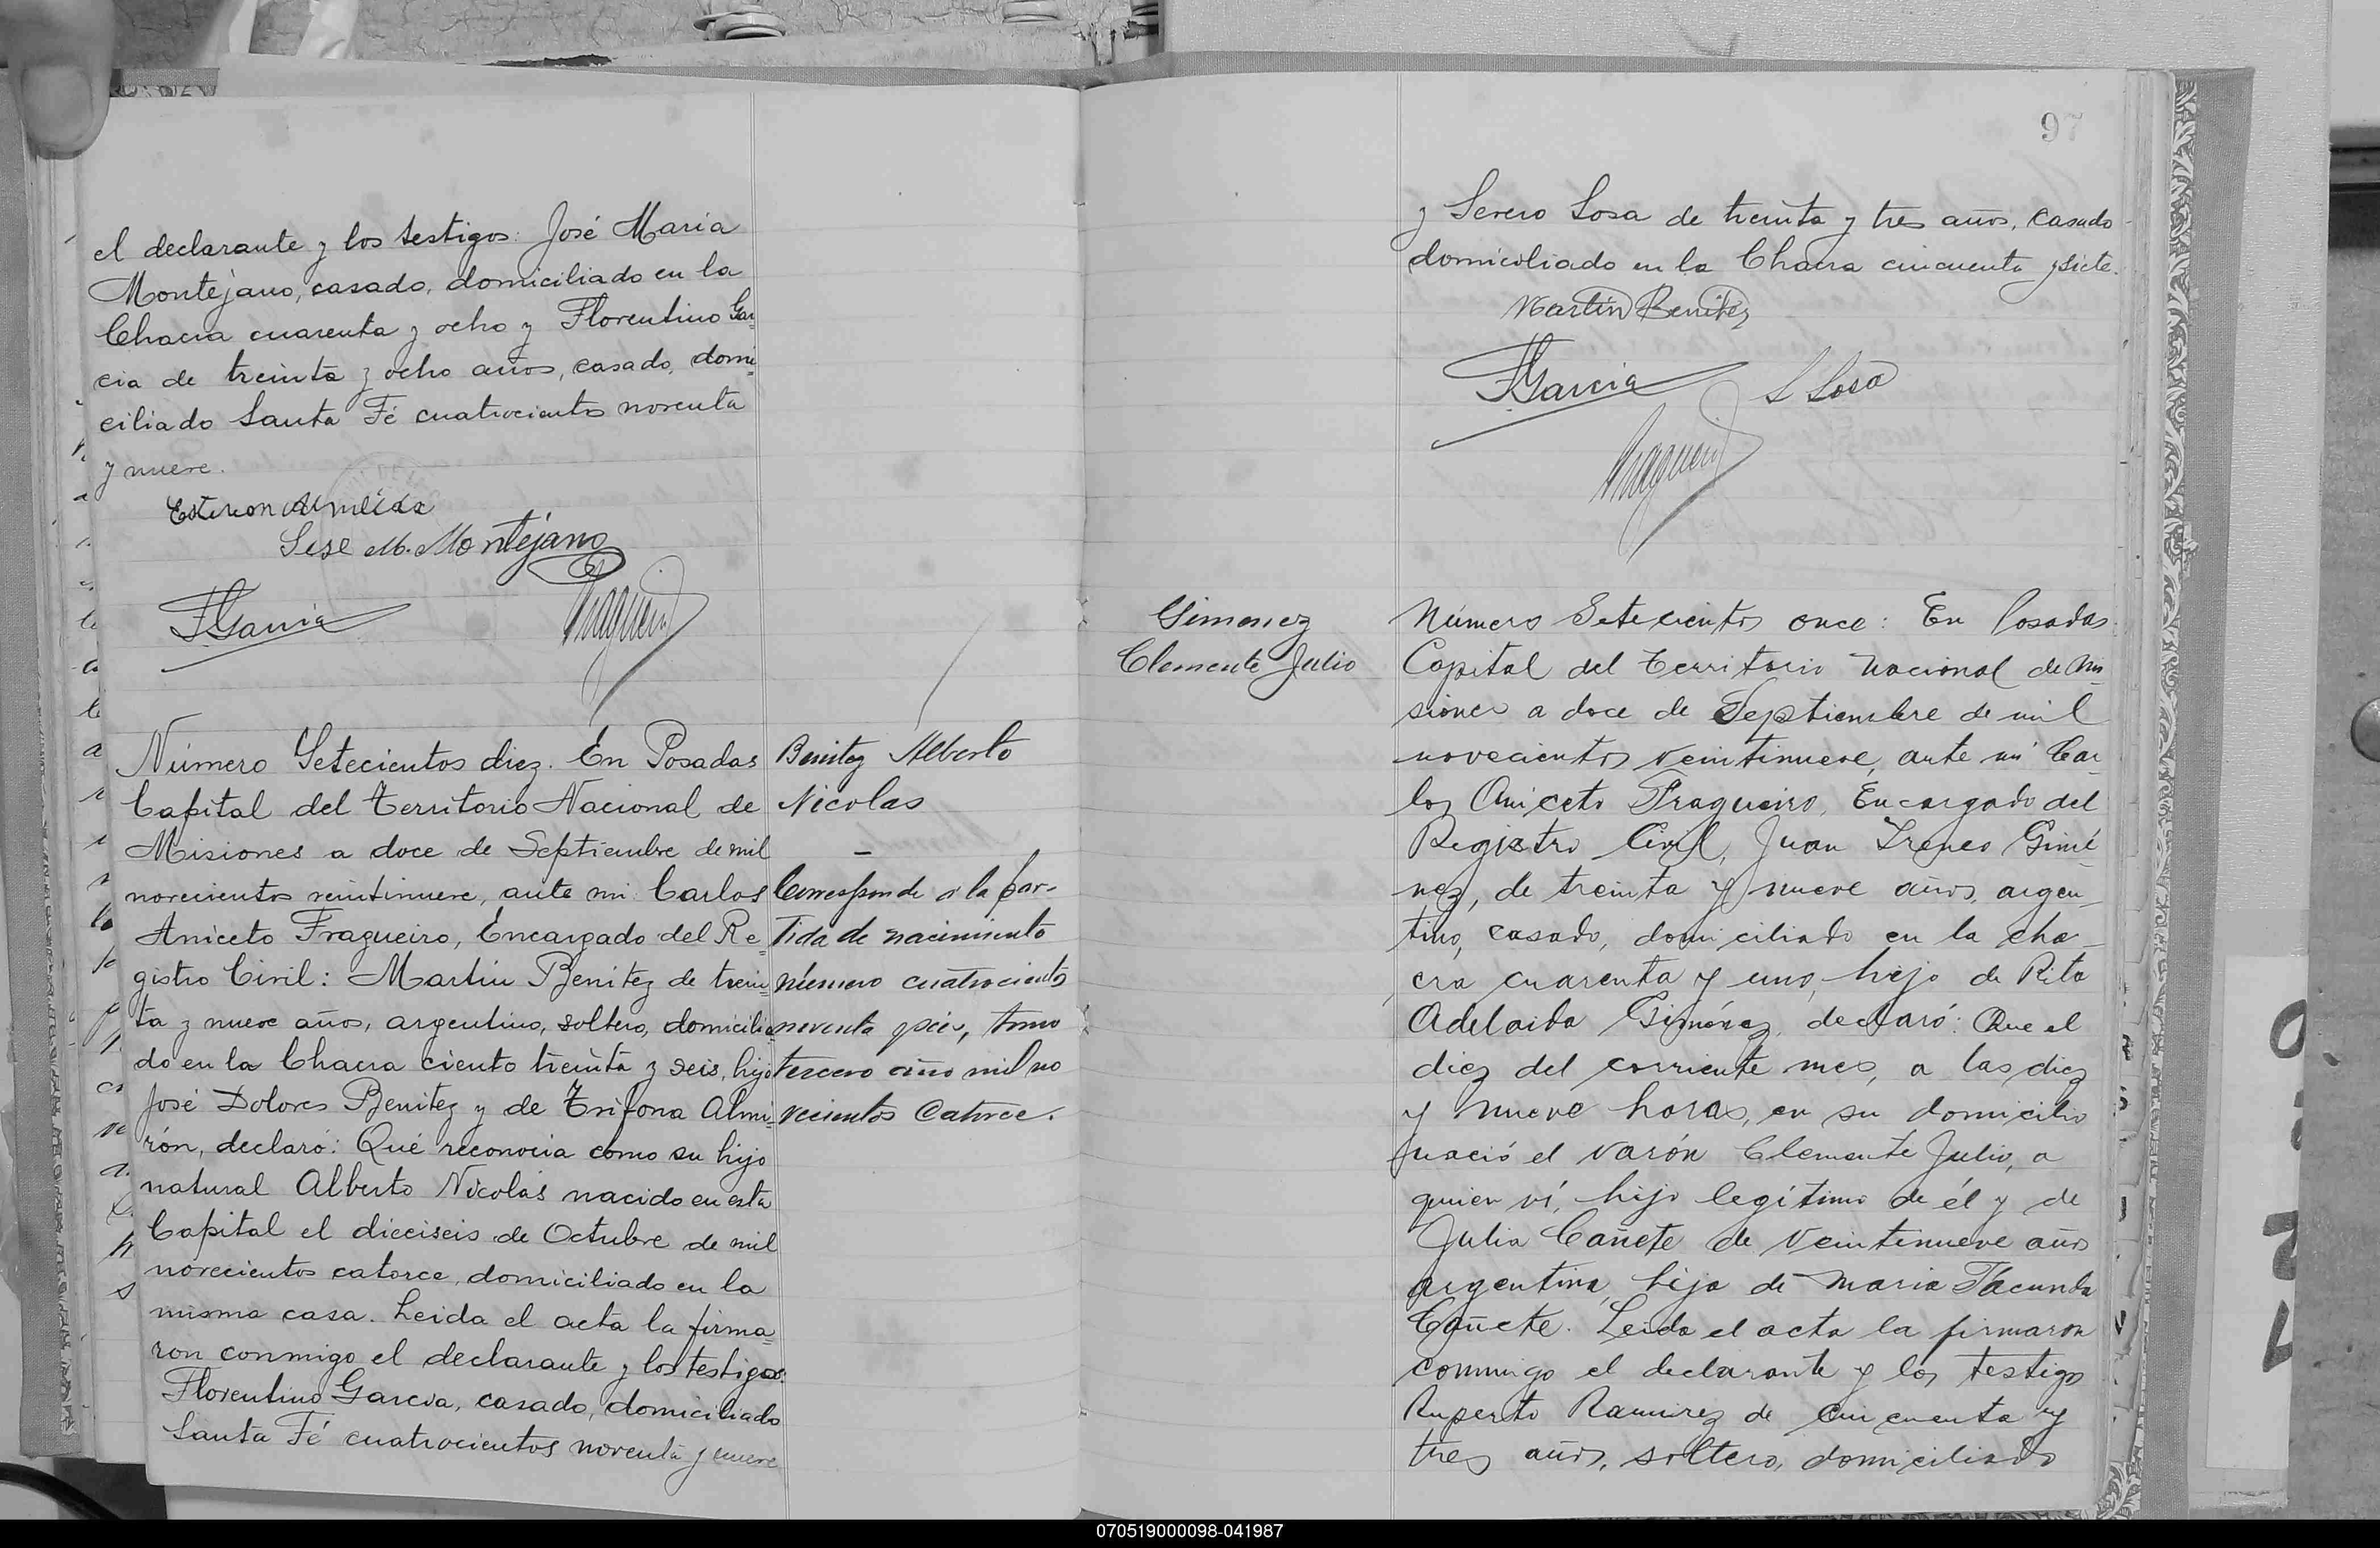 el declarante y los testigos: José Maria
Montejano, casado, domiciliado en la
Chacra cuarenta y ocho y Florentino Gar=
cia de treinta y ocho años, casado, domi=
ciliado Santa Fé cuatrocientos noventa
y nueve.
Almeida
Jose M. Montejano
FGarcia
Fragueiro
Número Setecientos diez. En Posadas
Capital del Territorio Nacional de
Misiones a doce de Septiembre de mil
novecientos veintinueve, ante mi Carlos
Aniceto Fragueiro, Encargado del Re=
gistro Civil: Martin Benitez de trein=
ta y nueve años, argentino, soltero, domicilia
do en la Chacra ciento treinta y seis, hijo
José Dolores Benitez y de Trifona Almi=
rón, declaró: Qué reconocia como su hijo
natural Alberto Nicolás nacido en esta
Capital el dieciseis de Octubre de mil
novecientos catorce, domiciliado en la
misma casa. Leida el acta la firma=
ron conmigo el declarante y los testigos:
Florentino Garcia, casado, domiciliado
Santa Fé cuatrocientos noventa y nueve
Benitez Alberto
Nicolas
–
Corresponde a la par-
tida de nacimiento
número cuatrocientos
noventa y seis, tomo
tercero año mil no
vecientos catorce.
97
y Severo Sosa de treinta y tres años, casado
domiciliado en la Chacra cincuenta y siete.
Martin Benitez
FGarcia S Sosa
Fragueiro
Gimenez
Clemente Julio
Número Setecientos once: En Posadas
Capital del Territorio Nacional de Mi
siones a doce de Septiembre de mil
novecientos veintinueve, ante mi Car
los Aniceto Fragueiro, Encargado del
Registro Civil, Juan Ireneo Gimé
nez, de treinta y nueve años, argen_
tino, casado, domiciliado en la cha_
cra cuarenta y uno, hijo de Rita
Adelaida Giménez, declaró: Que el
diez del corriente mes, a las diez
y nueve horas, en su domicilio
nació el varón Clemente Julio, a
quien ví, hijo legítimo de él y de
Julia Cañete de veintinueve años
argentina, hija de Maria Facunda
Cañete. Leida el acta la firmaron
conmigo el declarante y los testigos
Ruperto Ramirez de cincuenta y
tres años, soltero, domiciliado
070519000098-041987